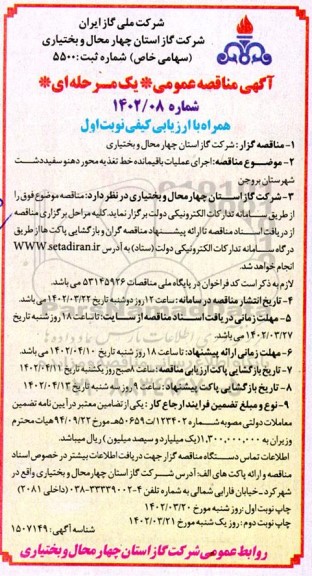 شرکت ملی گاز ایران
شرکت گاز استان چهار محال و بختیاری
(سهامی خاص) شماره ثبت: ۵۵۰۰
آگهی مناقصه عمومی * یک مرحله ای *
شماره ۱۴۰۲/۰۸
همراه با ارزیابی کیفی نوبت اول
۱- مناقصه گزار: شرکت گاز استان چهار محال و بختیاری
۲- موضوع مناقصه: اجرای عملیات باقیمانده خط تغذیه محور دهنو سفیددشت
شهرستان بروجن
۳- شرکت گاز استان چهار محال و بختیاری در نظر دارد: مناقصه موضوع فوق را
از طریق سامانه تدارکات الکترونیکی دولت برگزار نماید. کلیه مراحل برگزاری مناقصه
از دریافت اسناد مناقصه تا ارائه پیشنهاد مناقصه گران و بازگشایی پاکت ها از طریق
درگاه سامانه تدارکات الکترونیکی دولت (ستاد) به آدرس WWW.setadiran.ir
انجام خواهد شد.
لازم به ذکر است کد فراخوان در پایگاه ملی مناقصات ۵۳۱۴۵۹۲۶ می باشد.
۴- تاریخ انتشار مناقصه در سامانه: ساعت ۱۲ روز دوشنبه تاریخ ۱۴۰۲/۰۳/۲۲ می باشد.
۵- مهلت زمانی دریافت اسناد مناقصه از سایت: تا ساعت ۱۸ روز شنبه تاریخ
۱۴۰۲/۰۳/۲۷ می باشد.
۶- مهلت زمانی ارائه پیشنهاد: تا ساعت ۱۸ روز شنبه تاریخ ۱۴۰۲/۰۴/۱۰ می باشد.
۷- تاریخ بازگشایی پاکت ارزیابی مناقصه: ساعت ۸ صبح روز یکشنبه تاریخ ۱۴۰۲/۰۴/۱۱
۸- تاریخ بازگشایی پاکت پیشنهاد: ساعت ۹ روز سه شنبه تاریخ ۱۴۰۲/۰۴/۱۳
۹- نوع و مبلغ تضمین فرایند ارجاع کار: یکی از تضامین معتبر در آیین نامه تضمین
معاملات دولتی مصوبه شماره ۱۲۳۴۰۲/ت۵۰۶۵۹ه مورخ ۹۴/۰۹/۲۲ هیات محترم
وزیران به ۱,۳۰۰,۰۰۰,۰۰۰ (یک میلیارد و سیصد میلیون) ریال میباشد.
اطلاعات تماس دستگاه مناقصه گزار جهت دریافت اطلاعات بیشتر در خصوص اسناد
مناقصه و ارائه پاکت های الف: آدرس شرکت گاز استان چهار محال و بختیاری واقع در
شهر کرد - خیابان فارابی شمالی به شماره تلفن ۴-۰۳۸-۳۳۳۳۹۰۰۲ (داخلی ۲۰۸۱)
چاپ نوبت اول: روز شنبه مورخ ۱۴۰۲/۰۳/۲۰
چاپ نوبت دوم: روز یک شنبه مورخ ۱۴۰۲/۰۳/۲۱
شناسه آگهی: ۱۵۰۷۱۴۹
روابط عمومی شرکت گاز استان چهار محال و بختیاری